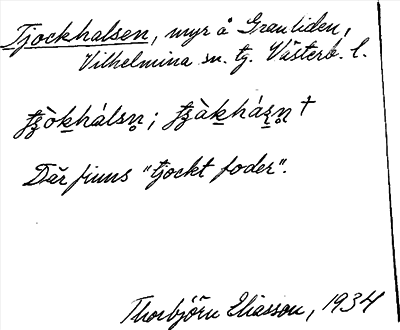 Tjockhalsen, myr å Granliden,
Vilhelmina sn. tg. Västerb. l.
Där finns "tjockt foder".
Thorbjörn Eliasson, 1934